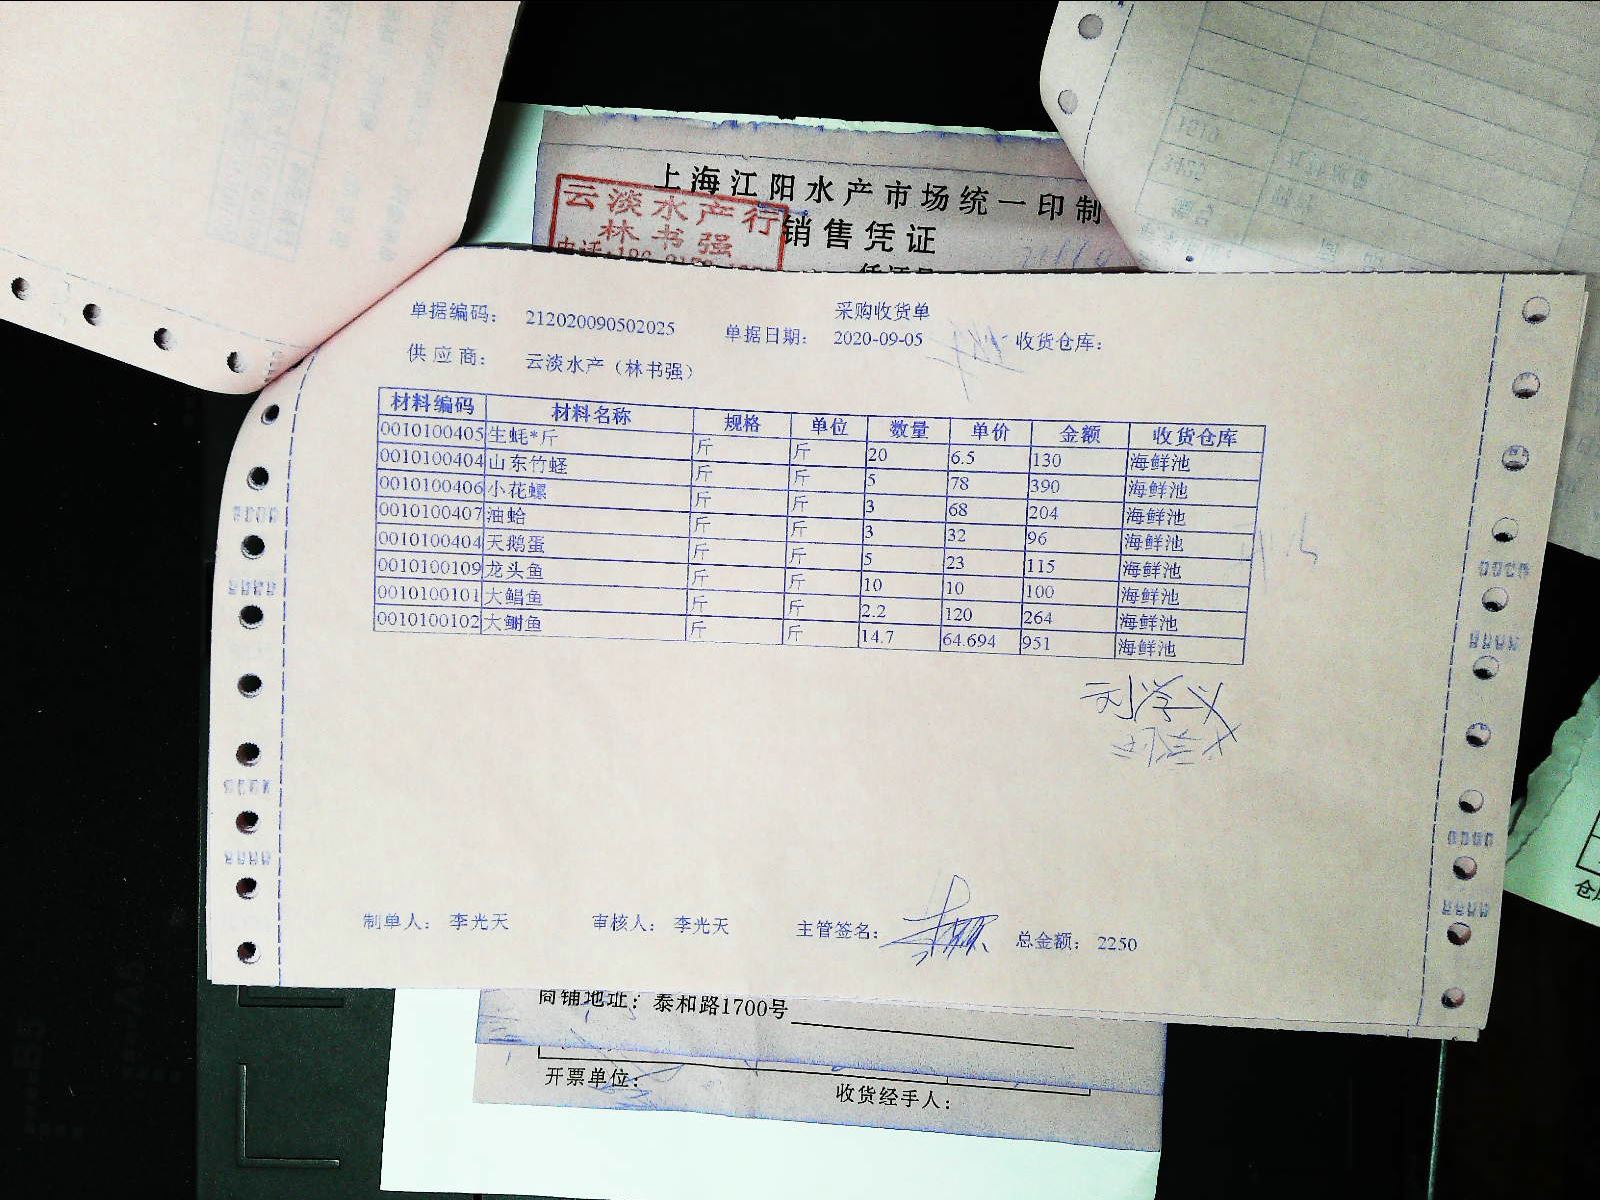 上海江阳水产市场统一印制
云淡水产行
林书强
销售凭证
采购收货单
单据编码： 212020090502025 单据日期： 2020-09-05 收货仓库：
供应商： 云淡水产（林书强）
材料编码 材料名称 规格 单位 数量 单价 金额 收货仓库
0010100405 生蚝*斤 斤 斤 20 6.5 130 海鲜池
0010100404 山东竹蛏 斤 斤 5 78 390 海鲜池
0010100406 小花螺 斤 斤 3 68 204 海鲜池
0010100407 油蛤 斤 斤 3 32 96 海鲜池
0010100404 天鹅蛋 斤 斤 5 23 115 海鲜池
0010100109 龙头鱼 斤 斤 10 10 100 海鲜池
0010100101 大鲳鱼 斤 斤 2.2 120 264 海鲜池
0010100102 大鮰鱼 斤 斤 14.7 64.694 951 海鲜池
制单人： 李光天 审核人： 李光天 主管签名： 总金额： 2250
商铺地址：泰和路1700号
开票单位：
收货经手人：